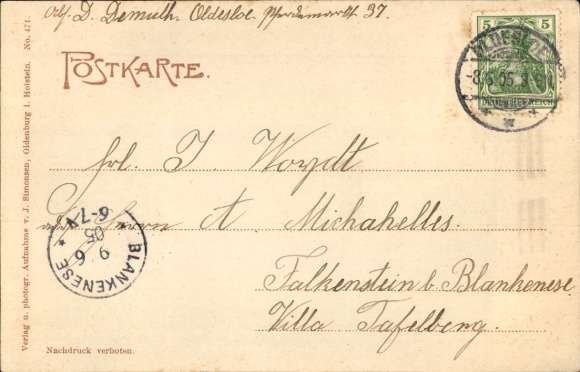 Abs. D. Demuth. Oldesloe. Pferdemarkt 37.
POSTKARTE.
5 5
OLDESLOE
-8.6.05.
DEUTSCHES REICH
Frl. J. Woydt
Herrn A. Michahelles.
Falkenstein b. Blankenese
Villa Tafelberg.
BLANKENESE
9 6
05
6-7
Verlag u. photogr. Aufnahme v. J. Simonsen, Oldenburg i. Holstein. No. 471.
Nachdruck verboten.